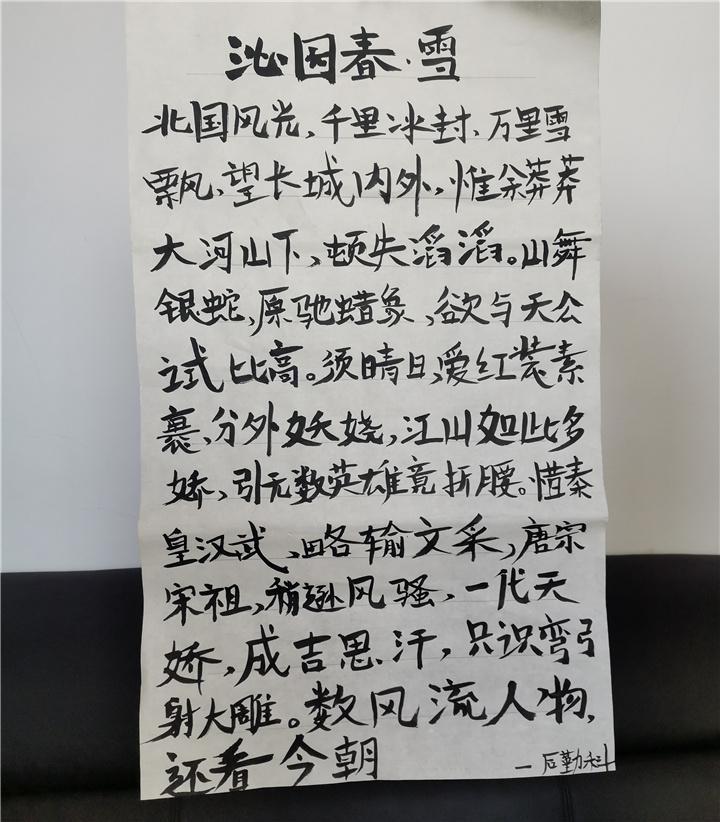 沁园春·雪
北国风光,千里冰封、万里雪
飘风、望长城内外,惟余莽莽
大河山下,顿失滔滔。山舞
银蛇,原驰蜡象,欲与天公
试比高。须晴日,爱红装素
裹、分外妖娆,江山如此多
娇,引无数英雄竟折腰。惜秦
皇汉武、略输文采,唐宗
宋祖,稍逊风骚,一代天
娇,成吉思汗,只识弯弓
射大雕。数风流人物,
还看今朝
一后勤科